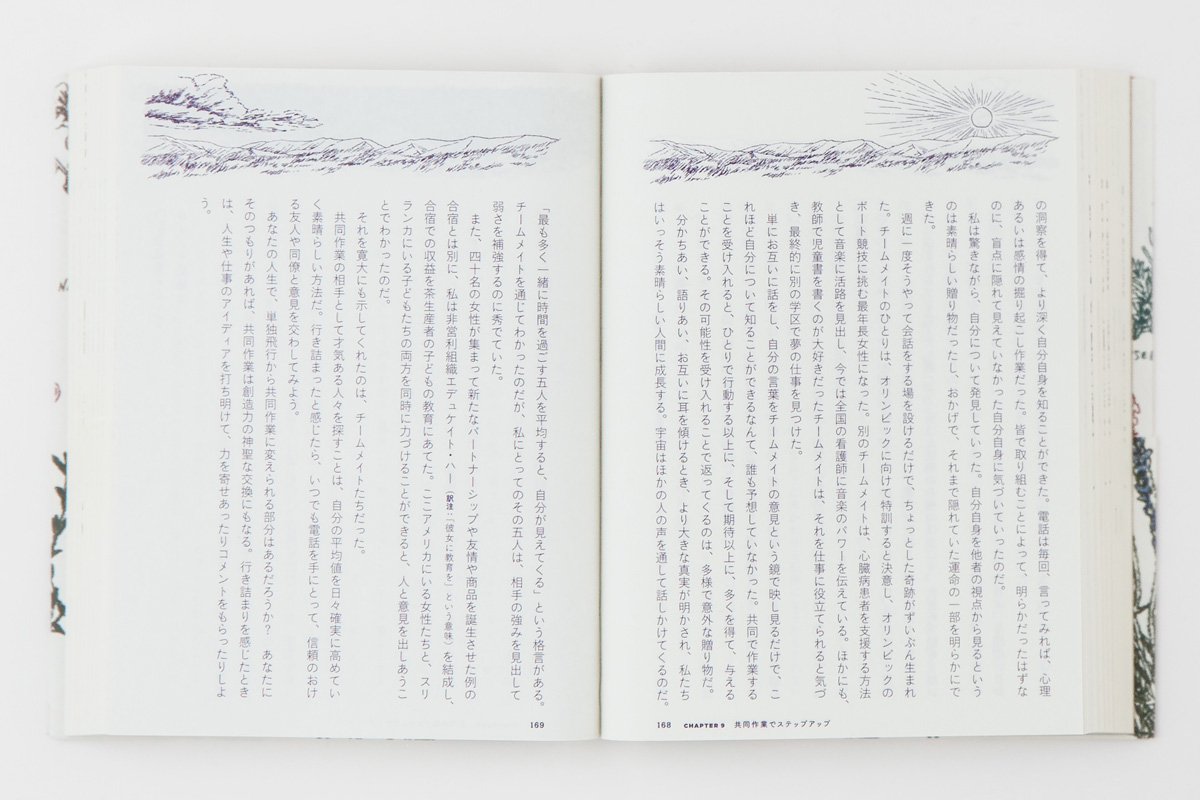 の洞察を得て、より深く自分自身を知ることができた。電話は毎回、言ってみれば、心理
あるいは感情の掘り起こし作業だった。皆で取り組むことによって、明らかだったはずな
のに、盲点に隠れて見えていなかった自分自身に気づいていったのだ。
私は驚きながら、自分について発見していった。自分自身を他者の視点から見るという
のは素晴らしい贈り物だったし、おかげで、それまで隠れていた運命の一部を明らかにで
きた。
週に一度そうやって会話をする場を設けるだけで、ちょっとした奇跡がずいぶん生まれ
た。チームメイトのひとりは、オリンピックに向けて特訓すると決意し、オリンピックの
ボート競技に挑む最年長女性になった。別のチームメイトは、心臓病患者を支援する方法
として音楽に活路を見出し、今では全国の看護師に音楽のパワーを伝えている。ほかにも、
教師で児童書を書くのが大好きだったチームメイトは、それを仕事に役立てられると気づ
き、最終的に別の学区で夢の仕事を見つけた。
単にお互いに話をし、自分の言葉をチームメイトの意見という鏡で映し見るだけで、こ
れほど自分について知ることができるなんて、誰も予想していなかった。共同で作業する
ことを受け入れると、ひとりで行動する以上に、そして期待以上に、多くを得て、与える
ことができる。その可能性を受け入れることで返ってくるのは、多様で意外な贈り物だ。
分かちあい、語りあい、お互いに耳を傾けるとき、より大きな真実が明かされ、私たち
はいっそう素晴らしい人間に成長する。宇宙はほかの人の声を通して話しかけてくるのだ。
168 CHAPTER 9 共同作業でステップアップ
「最も多く一緒に時間を過ごす五人を平均すると、自分が見えてくる」という格言がある。
チームメイトを通じてわかったのだが、私にとってのその五人は、相手の強みを見出して
弱さを補強するのに秀でていた。
また、四十名の女性が集まって新たなパートナーシップや友情や商品を誕生させた例の
合宿とは別に、私は非営利組織エデュケイト・ハー（訳注：「彼女に教育を」という意味）を結成し、
合宿での収益を茶生産者の子どもの教育にあてた。ここアメリカにいる女性たちと、スリ
ランカにいる子どもたちの両方を同時に力づけることができると、人と意見を出しあうこ
とでわかったのだ。
それを寛大にも示してくれたのは、チームメイトたちだった。
共同作業の相手として才気ある人々を探すことは、自分の平均値を日々確実に高めてい
く素晴らしい方法だ。行き詰まったと感じたら、いつでも電話を手にとって、信頼のおけ
る友人や同僚と意見を交わしてみよう。
あなたの人生で、単独飛行から共同作業に変えられる部分はあるだろうか？ あなたに
そのつもりがあれば、共同作業は創造力の神聖な交換にもなる。行き詰まりを感じたとき
は、人生や仕事のアイディアを打ち明けて、力を寄せあったりコメントをもらったりしよ
う。
169